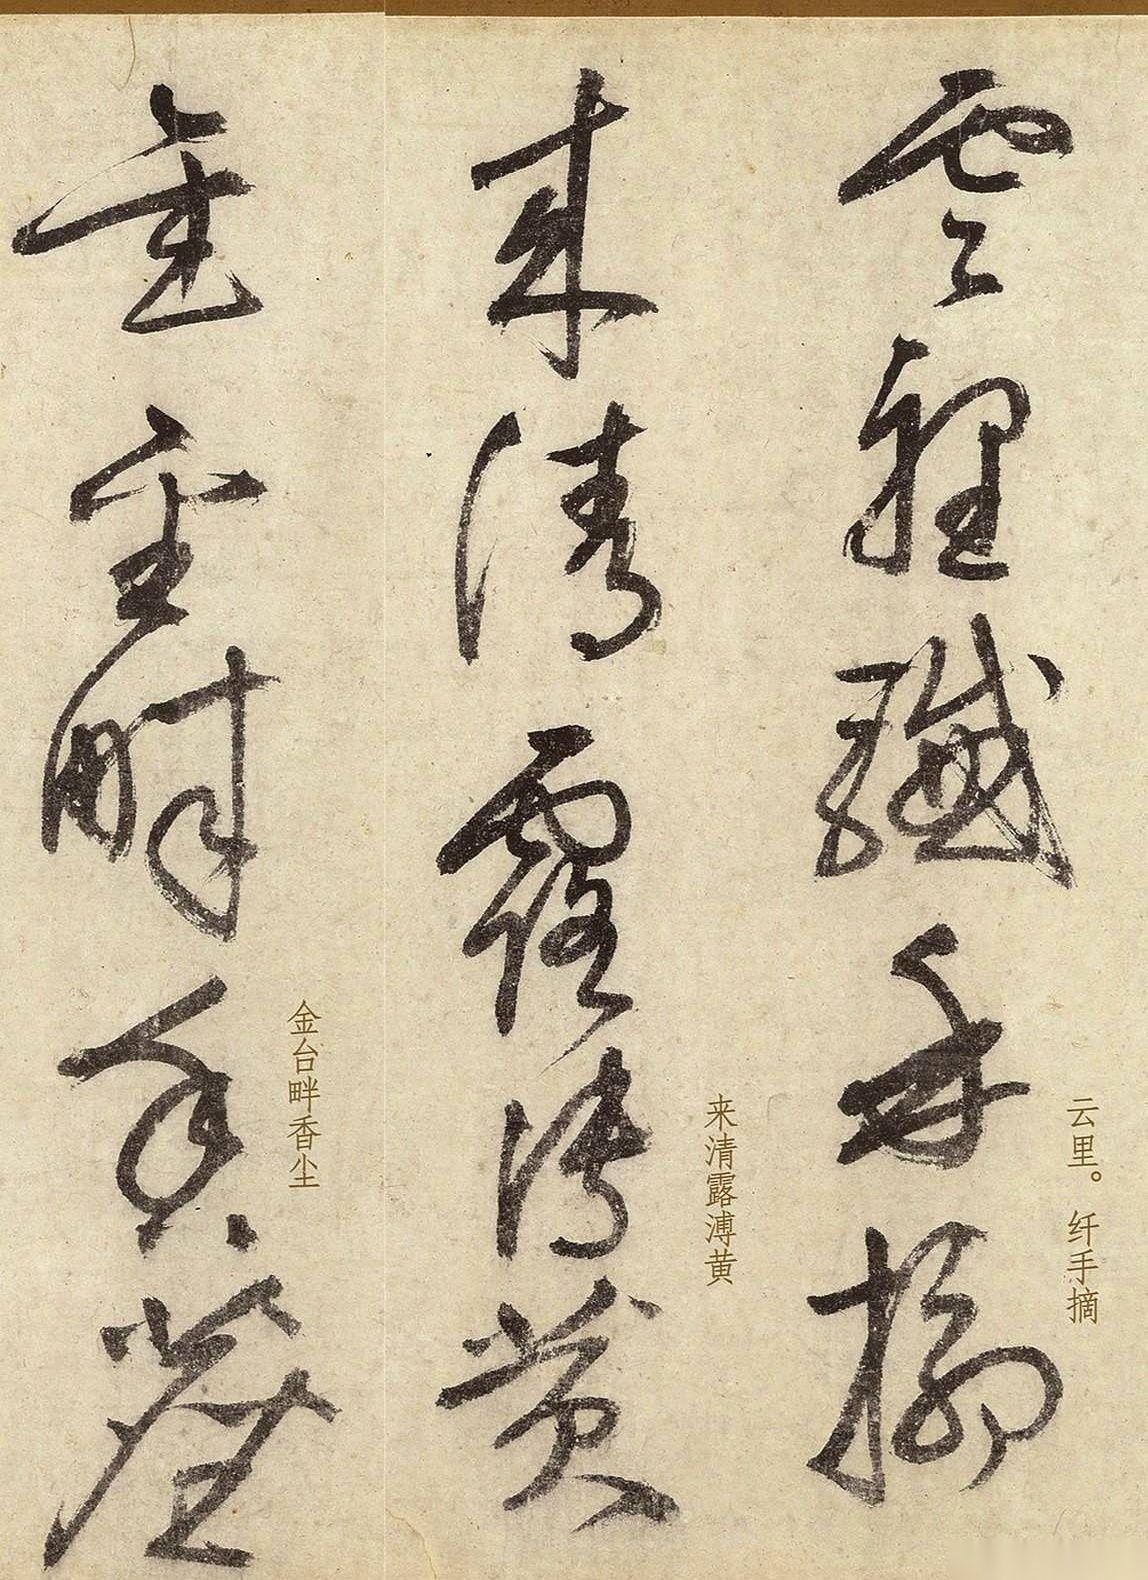 雲裡纖手摘
云里。纤手摘
来清露溥黄
来清露溥黄
金臺畔香塵
金台畔香尘